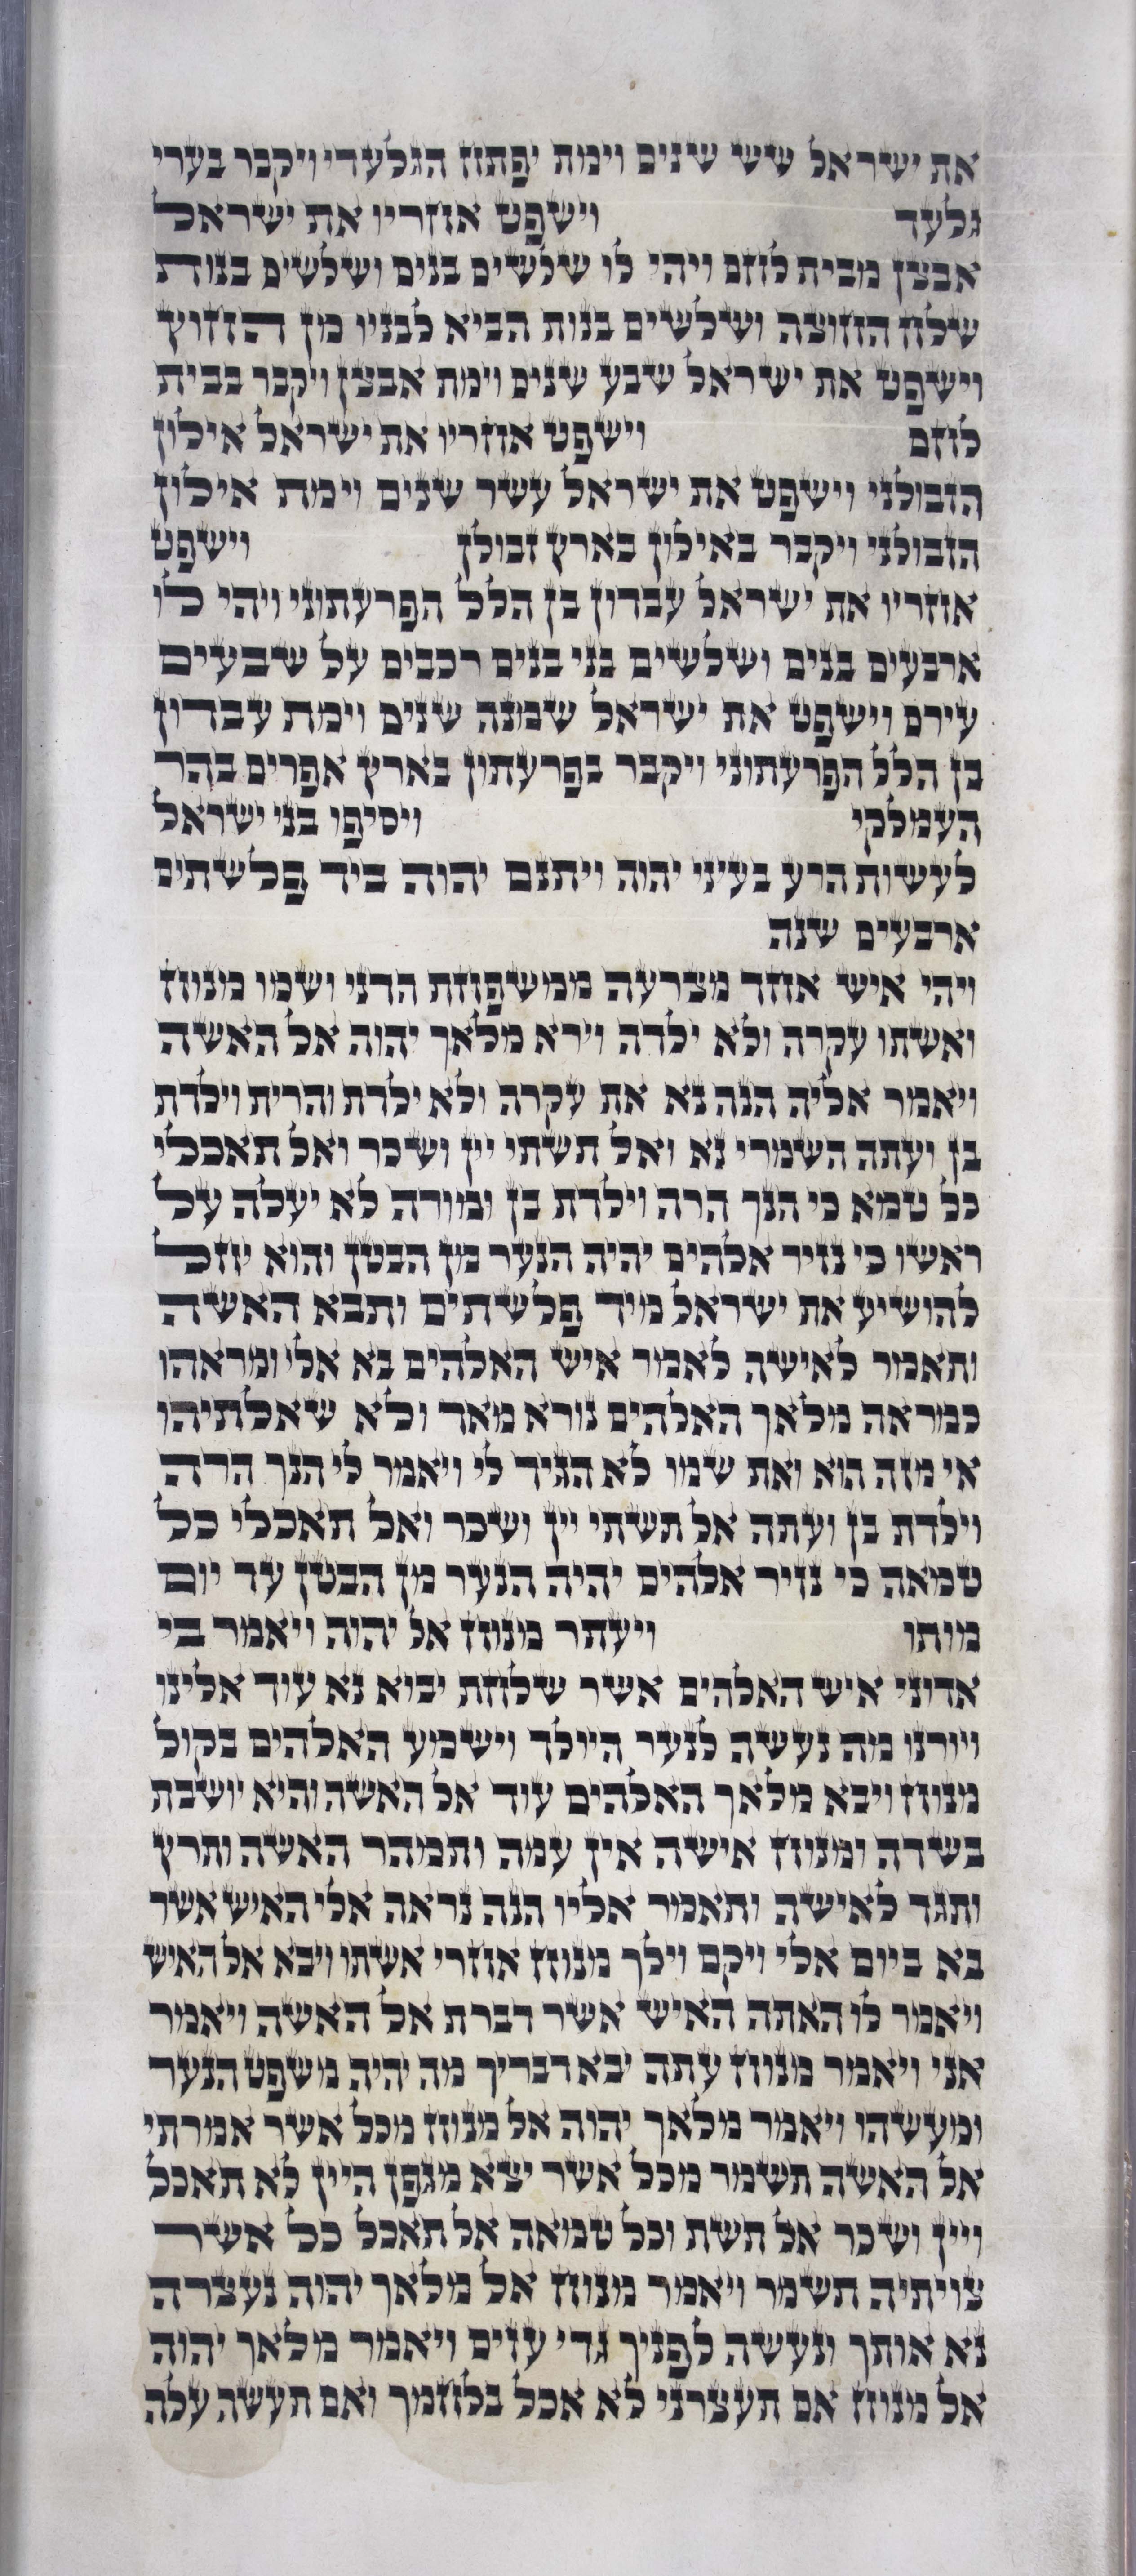 את ישראל שש שנים וימת יפתח הגלעדי ויקבר בערי
גלעד וישפט אחריו את ישראל
אבצן מבית לחם ויהי לו שלשים בנים ושלשים בנות
שלח החוצה ושלשים בנות הביא לבניו מן החוץ
וישפט את ישראל שבע שנים וימת אבצן ויקבר בבית
לחם וישפט אחריו את ישראל אילון
הזבולני וישפט את ישראל עשר שנים וימת אילון
הזבולני ויקבר באילון בארץ זבולן וישפט
אחריו את ישראל עבדון בן הלל הפרעתוני ויהי לו
ארבעים בנים ושלשים בני בנים רכבים על שבעים
עירם וישפט את ישראל שמנה שנים וימת עבדון
בן הלל הפרעתוני ויקבר בפרעתון בארץ אפרים בהר
העמלקי ויסיפו בני ישראל
לעשות הרע בעיני יהוה ויתנם יהוה ביד פלשתים
ארבעים שנה
ויהי איש אחד מצרעה ממשפחת הדני ושמו מנוח
ואשתו עקרה ולא ילדה וירא מלאך יהוה אל האשה
ויאמר אליה הנה נא את עקרה ולא ילדת והרית וילדת
בן ועתה השמרי נא ואל תשתי יין ושכר ואל תאכלי
כל טמא כי הנך הרה וילדת בן ומורה לא יעלה על
ראשו כי נזיר אלהים יהיה הנער מן הבטן והוא יחל
להושיע את ישראל מיד פלשתים ותבא האשה
ותאמר לאישה לאמר איש האלהים בא אלי ומראהו
כמראה מלאך האלהים נורא מאד ולא שאלתיהו
אי מזה הוא ואת שמו לא הגיד לי ויאמר לי הנך הרה
וילדת בן ועתה אל תשתי יין ושכר ואל תאכלי כל
טמאה כי נזיר אלהים יהיה הנער מן הבטן עד יום
מותו ויעתר מנוח אל יהוה ויאמר בי
אדוני איש האלהים אשר שלחת יבוא נא עוד אלינו
ויורנו מה נעשה לנער היולד וישמע האלהים בקול
מנוח ויבא מלאך האלהים עוד אל האשה והיא יושבת
בשדה ומנוח אישה אין עמה ותמהר האשה ותרץ
ותגד לאישה ותאמר אליו הנה נראה אלי האיש אשר
בא ביום אלי ויקם וילך מנוח אחרי אשתו ויבא אל האיש
ויאמר לו האתה האיש אשר דברת אל האשה ויאמר
אני ויאמר מנוח עתה יבא דבריך מה יהיה משפט הנער
ומעשהו ויאמר מלאך יהוה אל מנוח מכל אשר אמרתי
אל האשה תשמר מכל אשר יצא מגפן היין לא תאכל
ויין ושכר אל תשת וכל טמאה אל תאכל כל אשר
צויתיה תשמר ויאמר מנוח אל מלאך יהוה נעצרה
נא אותך ונעשה לפניך גדי עזים ויאמר מלאך יהוה
אל מנוח אם תעצרני לא אכל בלחמך ואם תעשה עלה